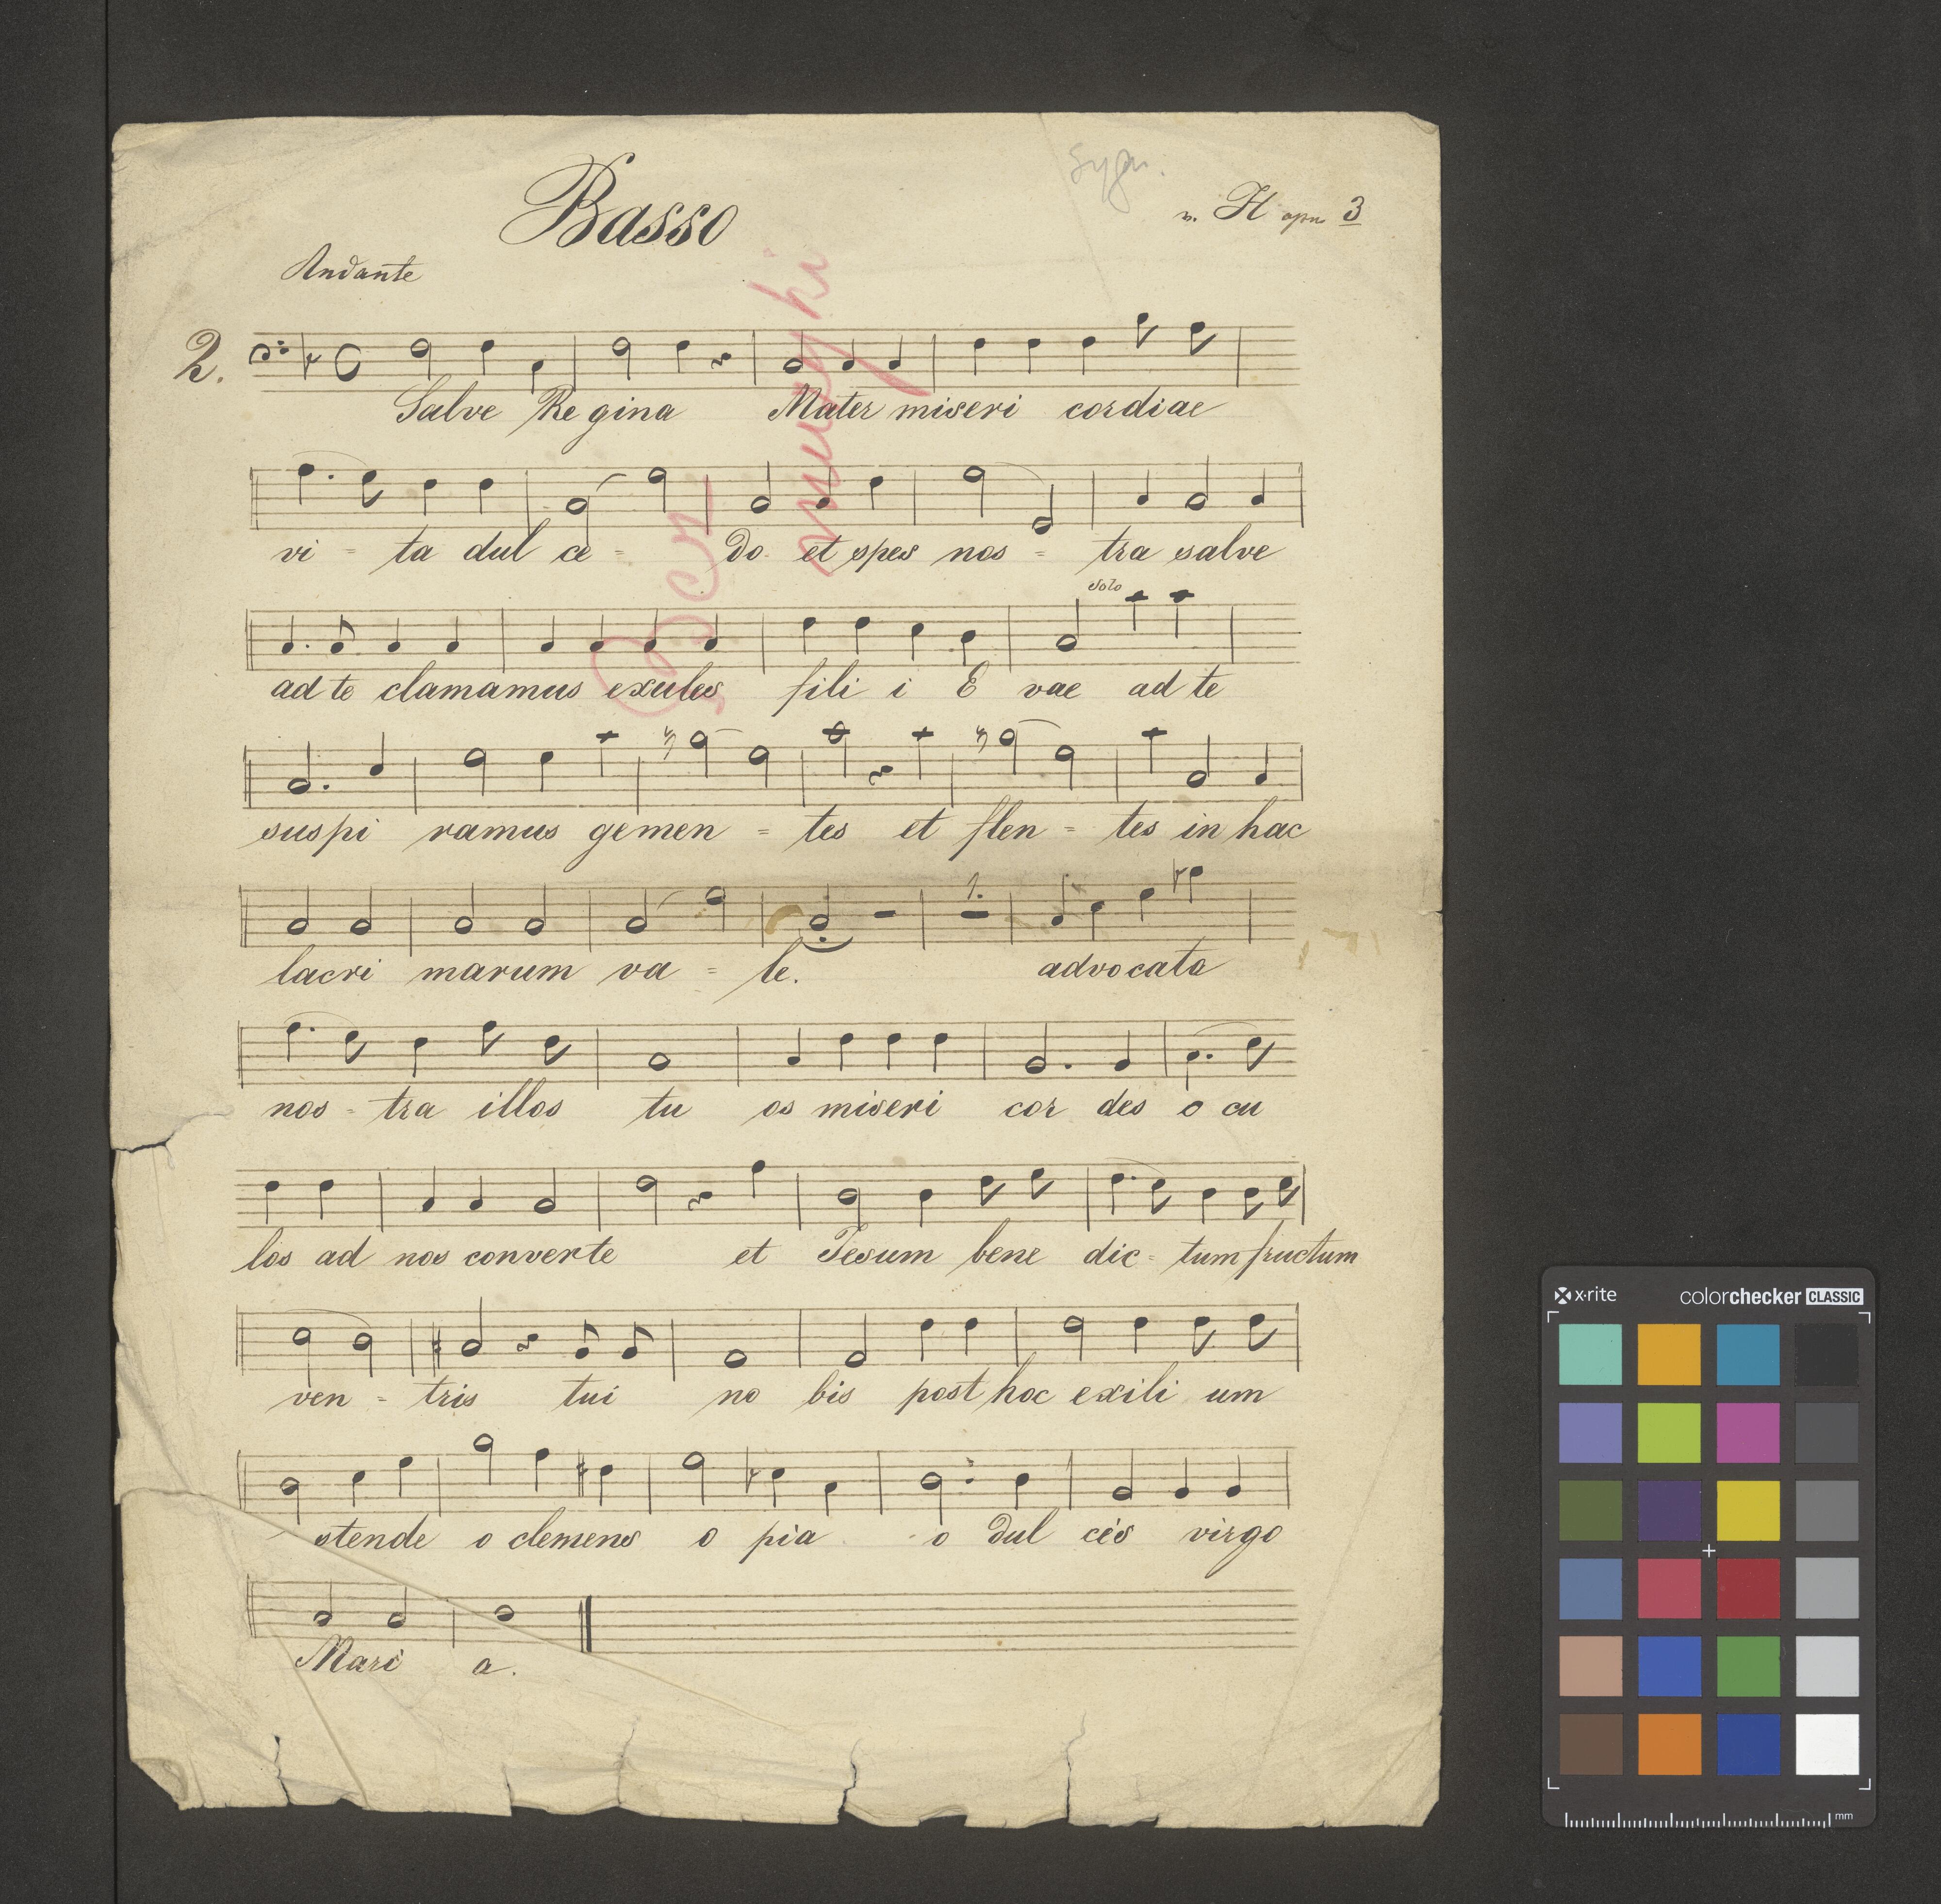 sygn.
Basso
v. H opus 3
Andante
2.
Salve Re gina Mater miseri cordiae
vi - ta dul ce - do et spes nos - tra salve
solo
ad te clamamus exules fili i E vae ad te
suspi ramus gemen - tes et flen - tes in hac
1.
lacri marum va - le. advocata
nos - tra illos tu os miseri cor des o cu
los ad nos converte et Jesum bene dic - tum fructum
ven - tris tui no bis post hoc exili um
stende o clemens o pia o dul cis virgo
Mari a.
Bez
x·rite
colorchecker CLASSIC
mm